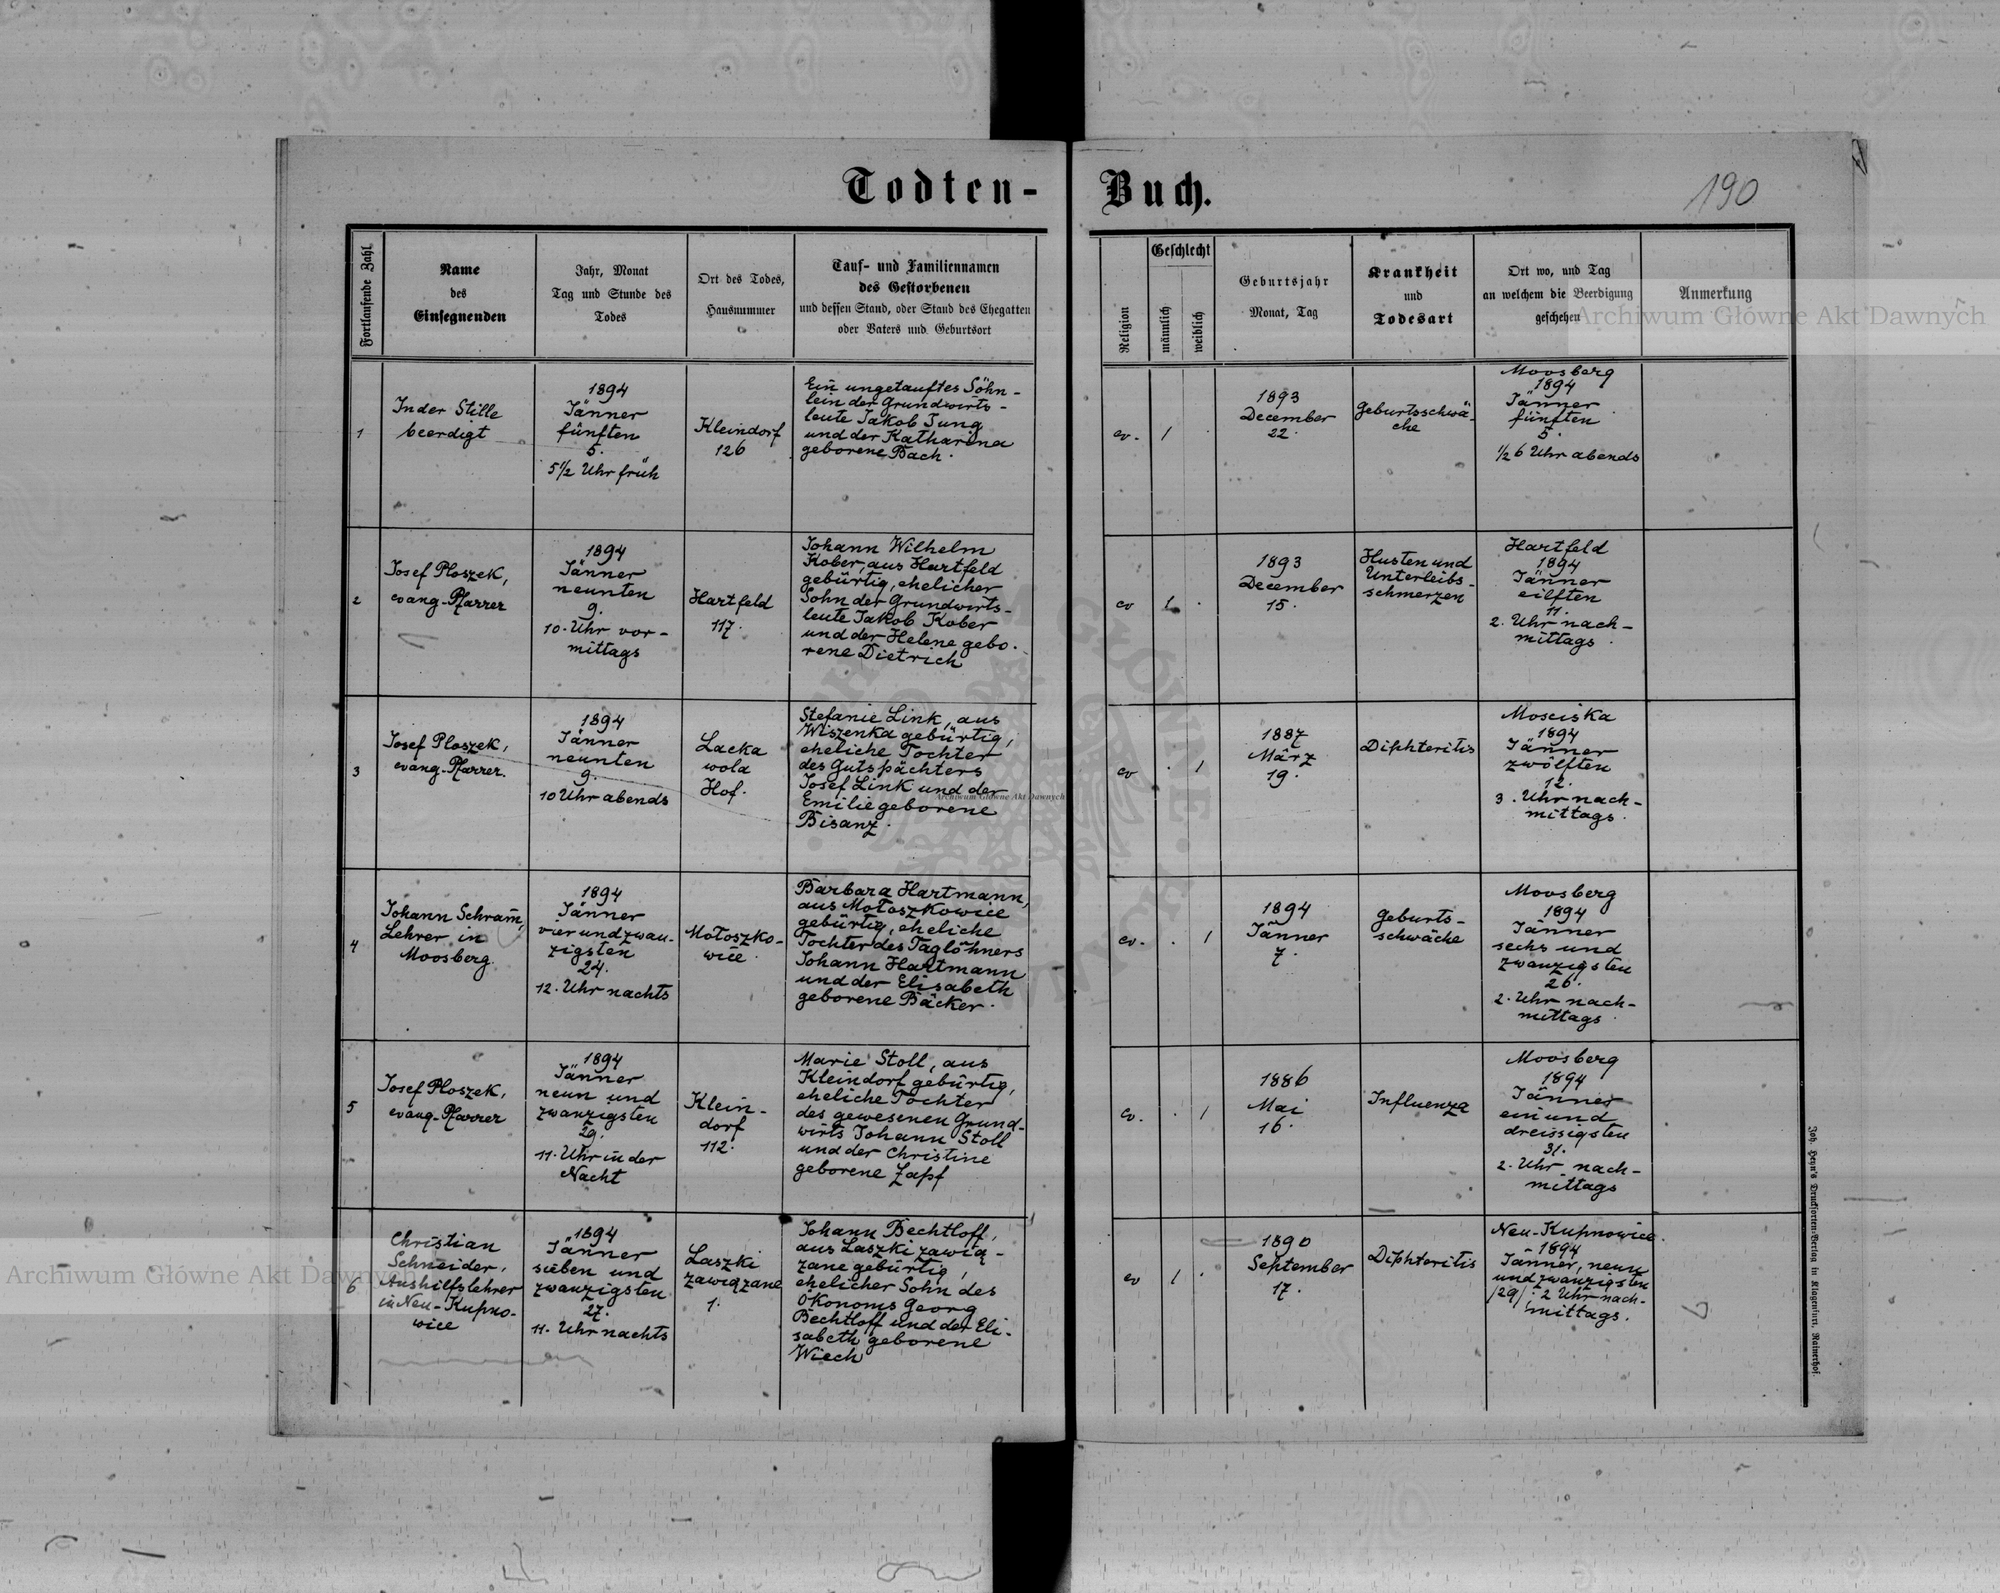 Todten-Buch.
190
Fortlaufende Zahl
Name
des
Einsegnenden
Jahr, Monat
Tag und Stunde des
Todes
Ort des Todes,
Hausnummer
Tauf- und Familiennamen
des Gestorbenen
und dessen Stand, oder Stand des Ehegatten
oder Vaters und Geburtsort
Religion
Geschlecht
männlich
weiblich
Geburtsjahr
Monat, Tag
Krankheit
und
Todesart
Ort wo, und Tag
an welchem die Beerdigung
geschehen
Anmerkung
1
In der Stille
beerdigt
1894
Jänner
fünften
5.
5 1/2 Uhr früh
Kleindorf
126
Ein ungetauftes Söhn-
lein der Grundwirts-
leute Jakob Jung
und der Katharina
geborene Bach.
ev.
1
.
1893
December
22.
Geburtsschwä-
che
Moosberg
1894
Jänner
fünften
5.
1/2 6 Uhr abends
2
Josef Ploszek,
evang. Pfarrer
1894
Jänner
neunten
9.
10. Uhr vor-
mittags
Hartfeld
117.
Johann Wilhelm
Kober, aus Hartfeld
gebürtig, ehelicher
Sohn der Grundwirts-
leute Jakob Kober
und der Helene gebo-
rene Dietrich
ev
1.
.
1893
December
15.
Husten und
Unterleibs-
schmerzen
Hartfeld
1894
Jänner
eilften
11.
2. Uhr nach-
mittags.
3
Josef Ploszek,
evang. Pfarrer.
1894
Jänner
neunten
9.
10 Uhr abends
Lacka
wola
Hof.
Stefanie Link, aus
Wiszenka gebürtig,
eheliche Tochter
des Gutspächters
Josef Link und der
Emilie geborene
Bisanz.
ev
.
1
1887
März
19.
Diphteritis
Mosciska
1894
Jänner
zwölften
12.
3. Uhr nach-
mittags.
4
Johann Schram̄,
Lehrer in
Moosberg.
1894
Jänner
vier und zwan-
zigsten
24.
12. Uhr nachts
Mołoszko-
wice.
Barbara Hartmann,
aus Mołoszkowice
gebürtig, eheliche
Tochter des Taglöhners
Johann Hartmann
und der Elisabeth
geborene Bäcker.
ev.
.
1
1894
Jänner
7.
Geburts-
schwäche
Moosberg
1894
Jänner
sechs und
zwanzigsten
26.
2. Uhr nach-
mittags.
5
Josef Ploszek,
evang. Pfarrer
1894
Jänner
neun und
zwanzigsten
29.
11. Uhr in der
Nacht
Klein-
dorf
112.
Marie Stoll, aus
Kleindorf gebürtig,
eheliche Tochter
des gewesenen Grund-
wirts Johann Stoll
und der Christine
geborene Zapf
ev.
.
1
1886
Mai
16.
Influenza
Moosberg
1894
Jänner
ein und
dreissigsten
31.
2. Uhr nach-
mittags
6
Christian
Schneider,
Aushilfslehrer
in Neu-Kupno-
wice
1894
Jänner
sieben und
zwanzigsten
27.
11. Uhr nachts
Laszki
zawiązane
1.
Johann Bechtloff,
aus Laszki zawią-
zane gebürtig,
ehelicher Sohn des
Ökonoms Georg
Bechtloff und der Eli-
sabeth geborene
Wiech
ev
1
.
1890
September
17.
Diphteritis
Neu-Kupnowice.
1894
Jänner, neun
und zwanzigsten
/29/. 2 Uhr nach-
mittags.
Joh. Heyn's Drucksorten-Verlag in Klagenfurt, Rainerhof.
Archiwum Główne Akt Dawnych
Archiwum Główne Akt Dawnych
Archiwum Główne Akt Dawnych